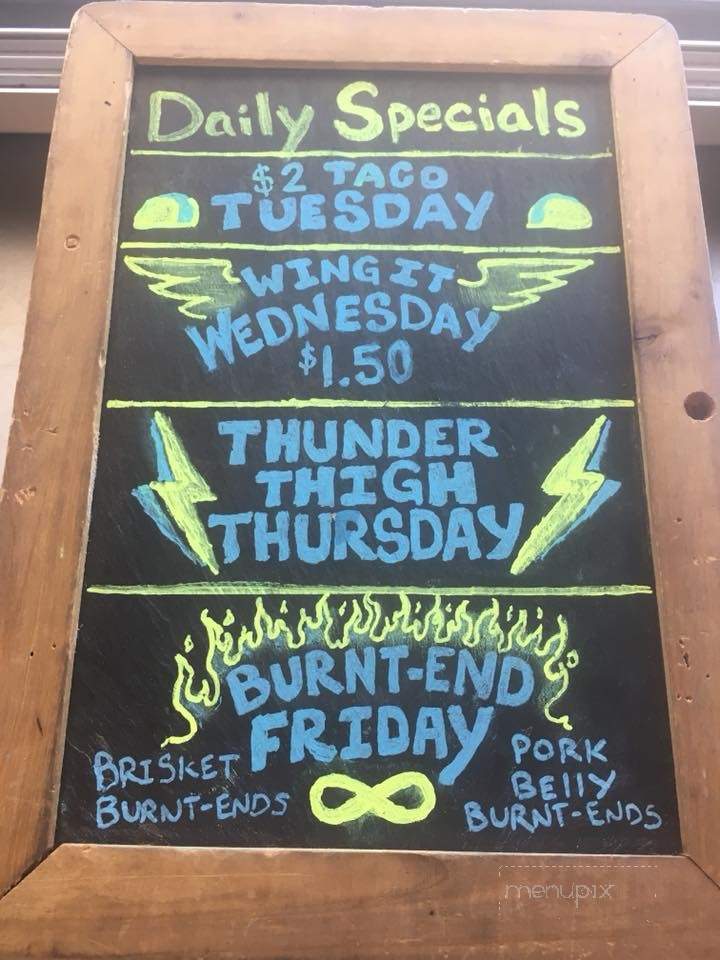 Daily Specials
$2 TACO
TUESDAY
WING IT
WEDNESDAY
$1.50
THUNDER
THIGH
THURSDAY
BURNT-END
FRIDAY
BRISKET
BURNT-ENDS
PORK
BELLY
BURNT-ENDS
menupix